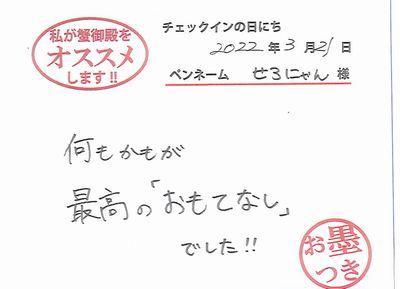 私が蟹御殿を
オススメ
します!!
チェックインの日にち
2022年3月21日
ペンネーム せろにゃん 様
何もかもが
最高の「おもてなし」
でした!!
お墨
つき